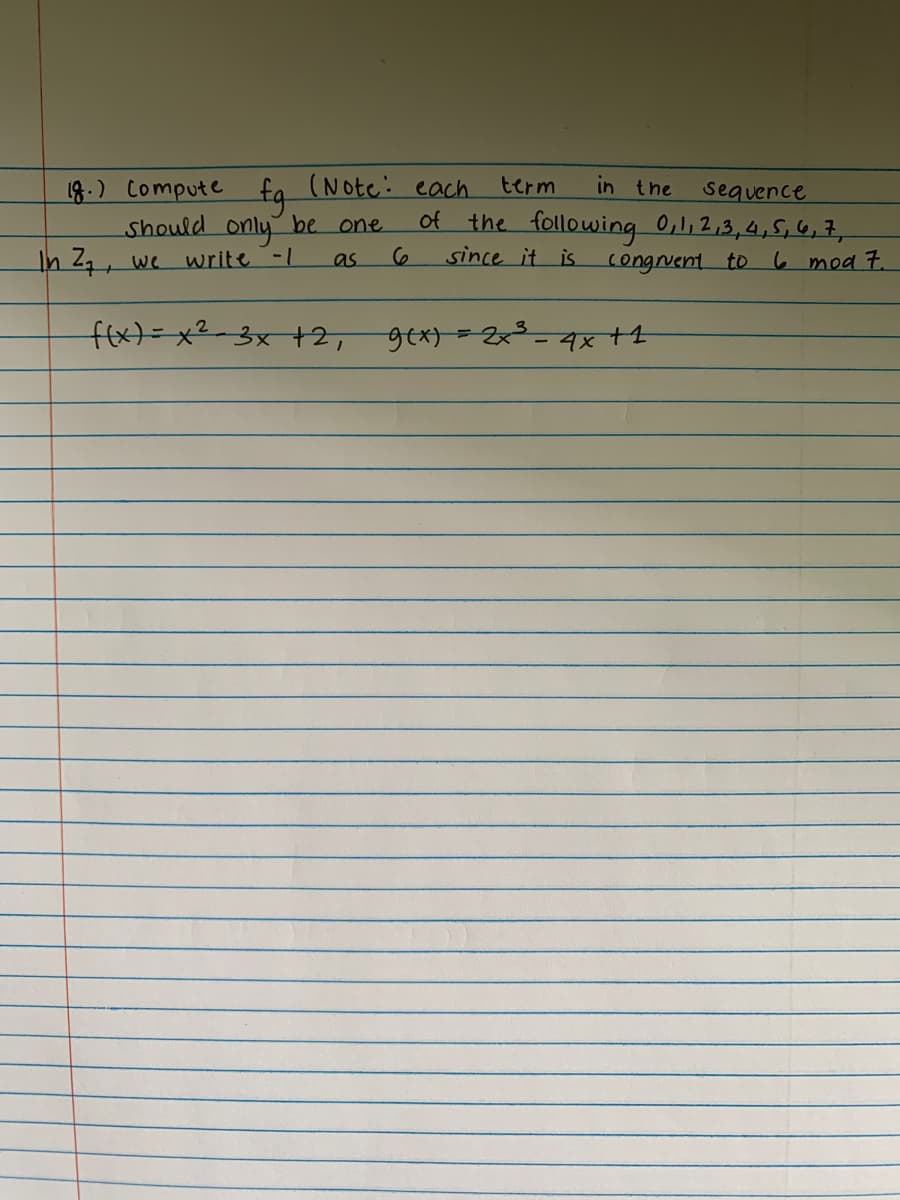 18.) Compute fg (Note: each term in the sequence
should only be one of the following 0,1,2,3,4,5,6,7,
In Z₇, we write -1 as 6 since it is congruent to 6 mod 7.
f(x) = x² - 3x + 2, g(x) = 2x³ - 4x + 1